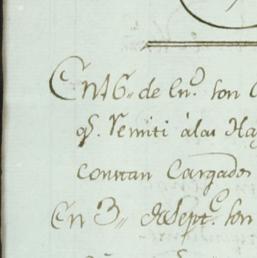 En 16,, de En.º son
q.e Remiti à las
Constan Cargados
En 3,, de Sept.e son